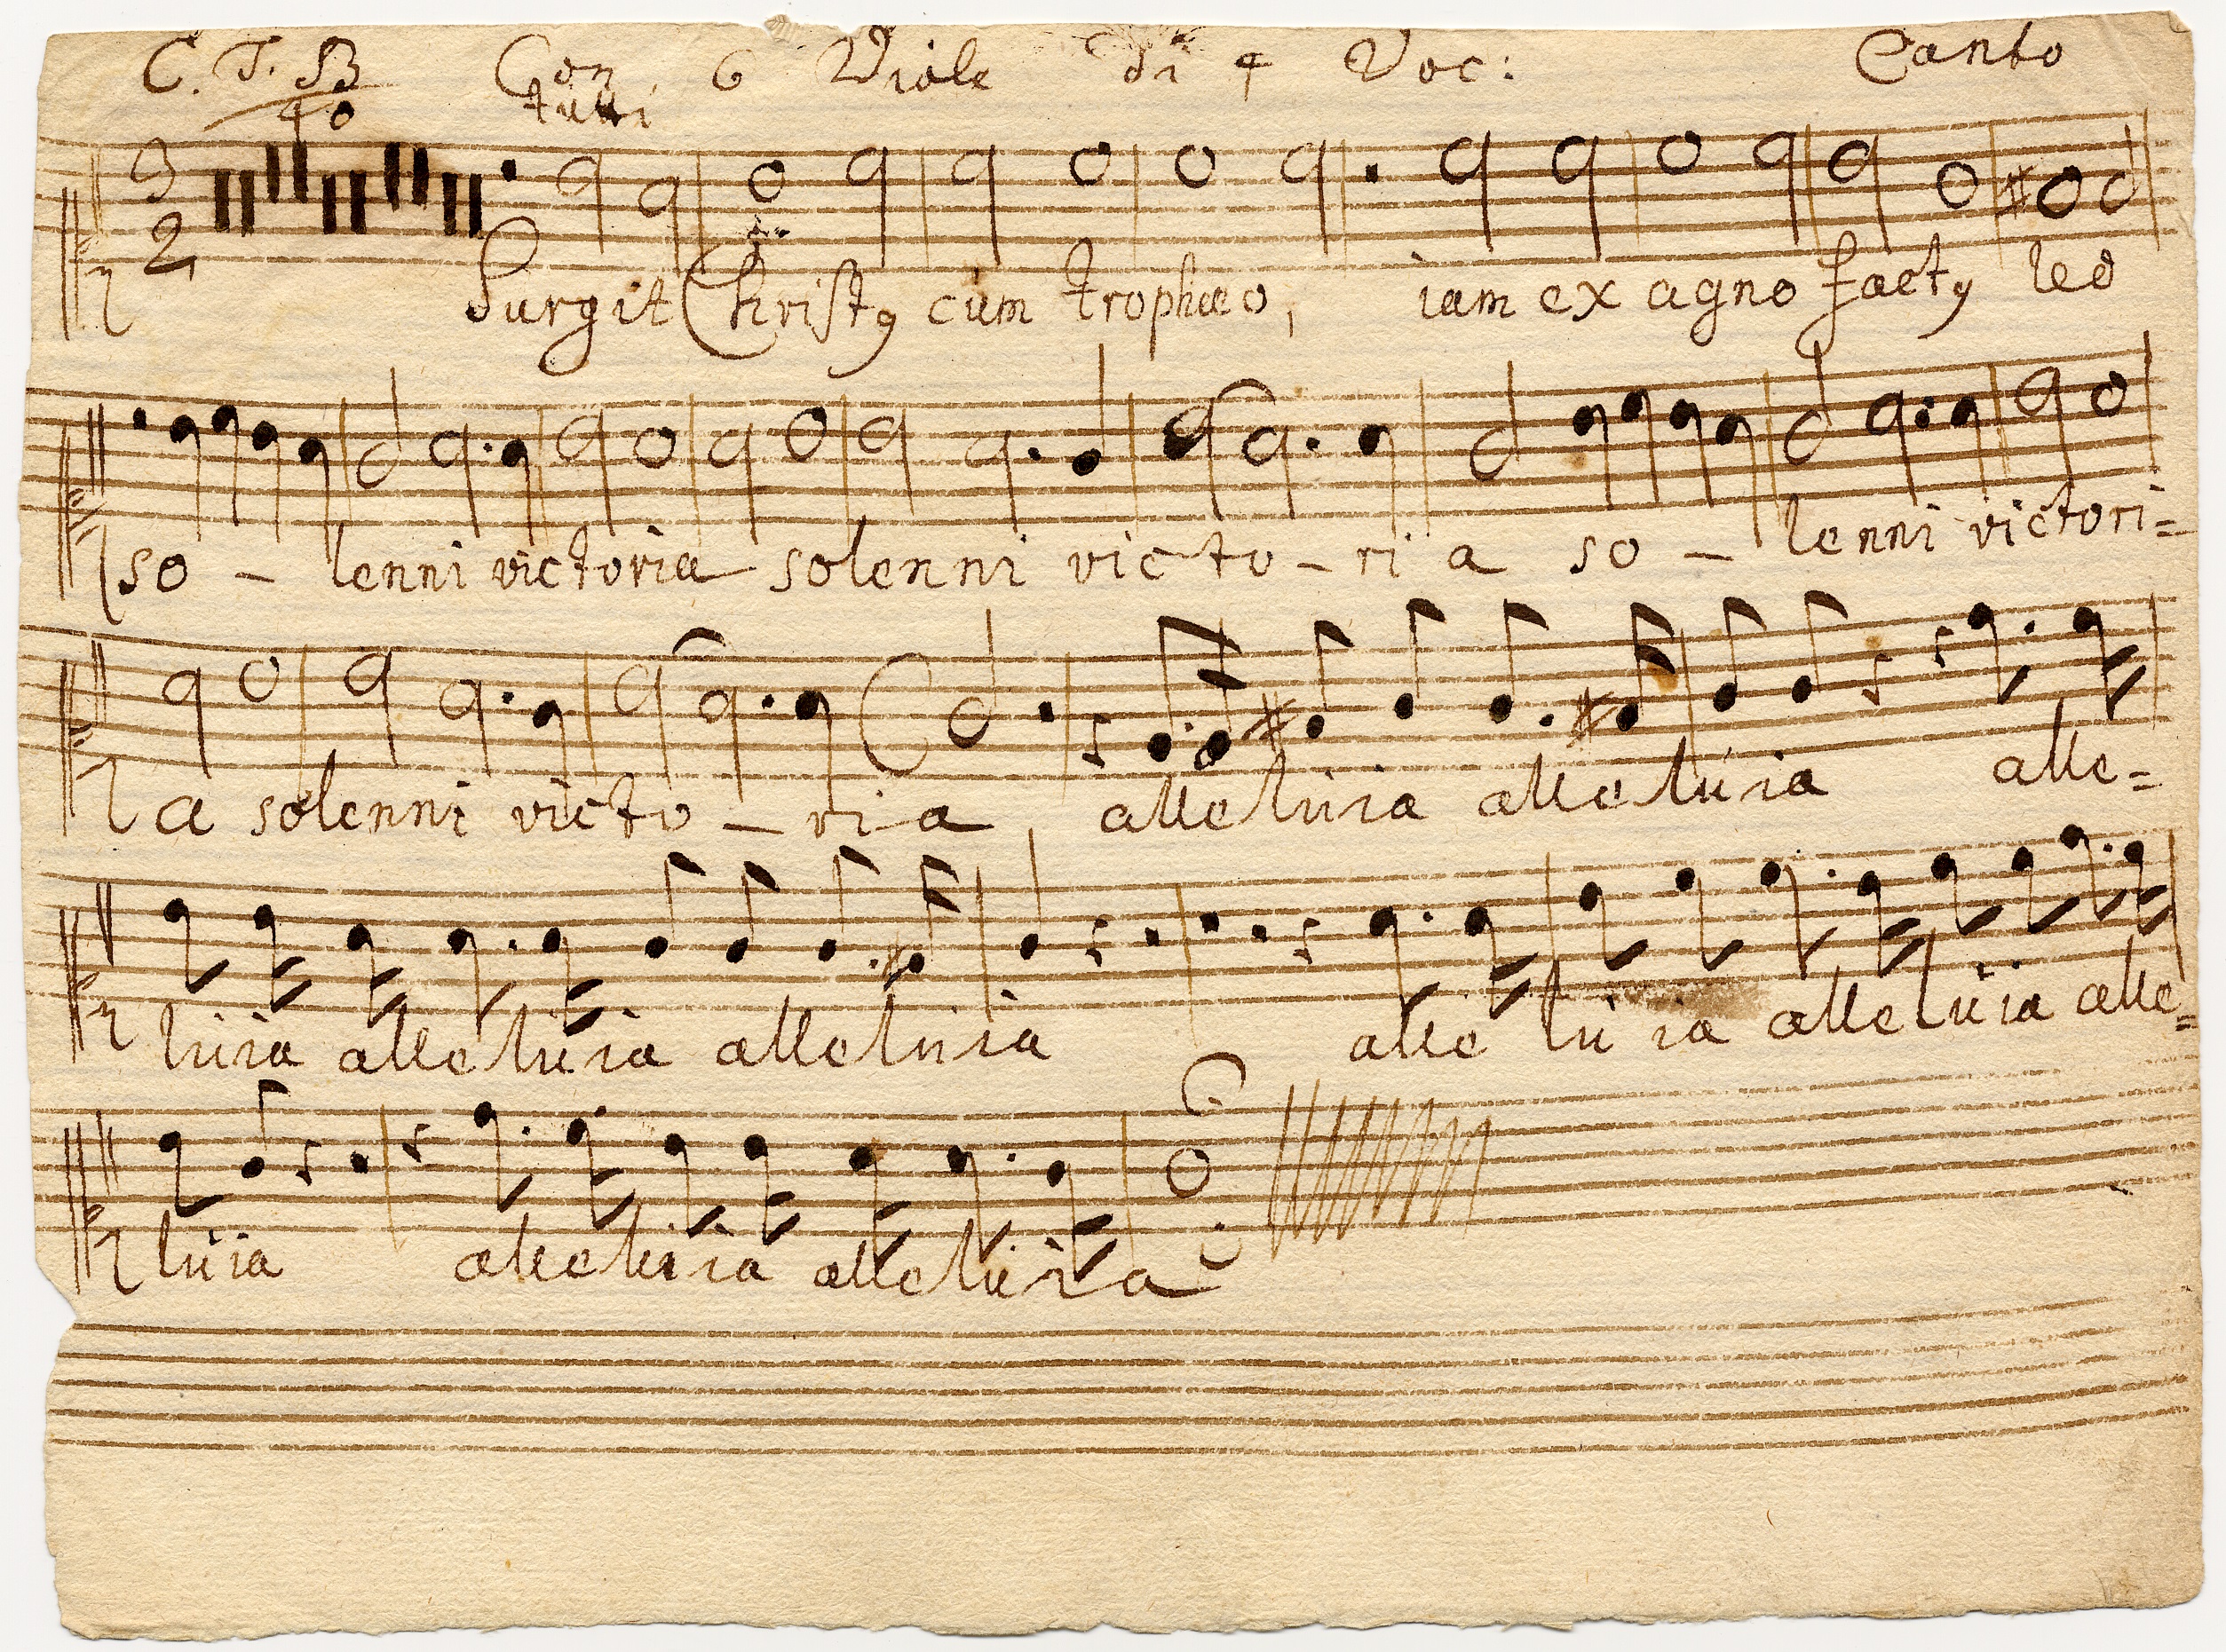 C. T. B Con 6 Viole di 4 Voc: Canto
40 tutti
3
2
Surgit Christꝰ cum trophæo, iam ex agno factꝰ leo
so – lenni victoria solenni victo – ri a so – lenni victori=
a solenni victo – ri a, alleluia alleluia alle=
luia alleluia alleluia alle lu ia alleluia alle=
luia alleluia alleluia